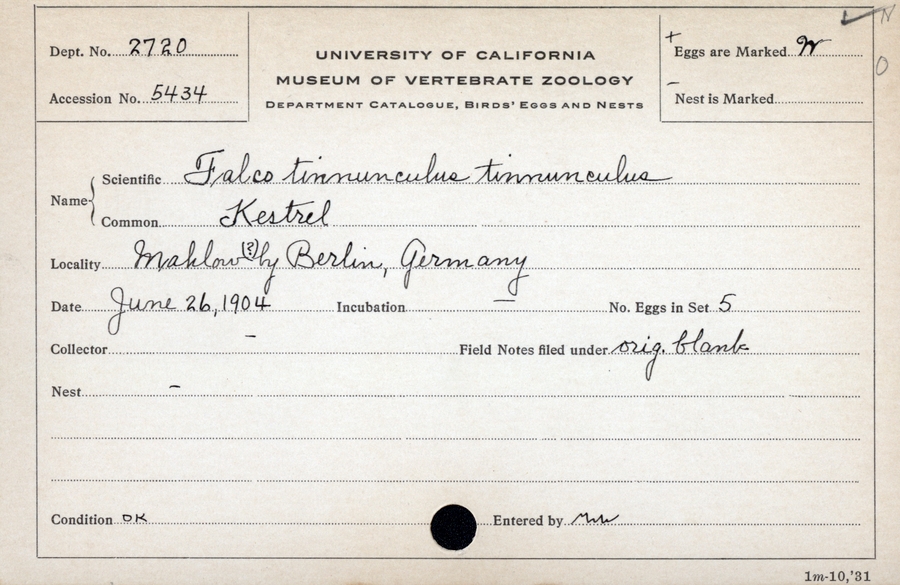 Dept. No. 2720
Accession No. 5434
UNIVERSITY OF CALIFORNIA
MUSEUM OF VERTEBRATE ZOOLOGY
DEPARTMENT CATALOGUE, BIRDS' EGGS AND NESTS
+ Eggs are Marked
- Nest is Marked
N
O
Name
Scientific Falco tinnunculus tinnunculus
Common Kestrel
Locality Mahlow (?) by Berlin, Germany
Date June 26, 1904 Incubation — No. Eggs in Set 5
Collector - Field Notes filed under orig. blank
Nest -
Condition OK Entered by
1m-10,'31